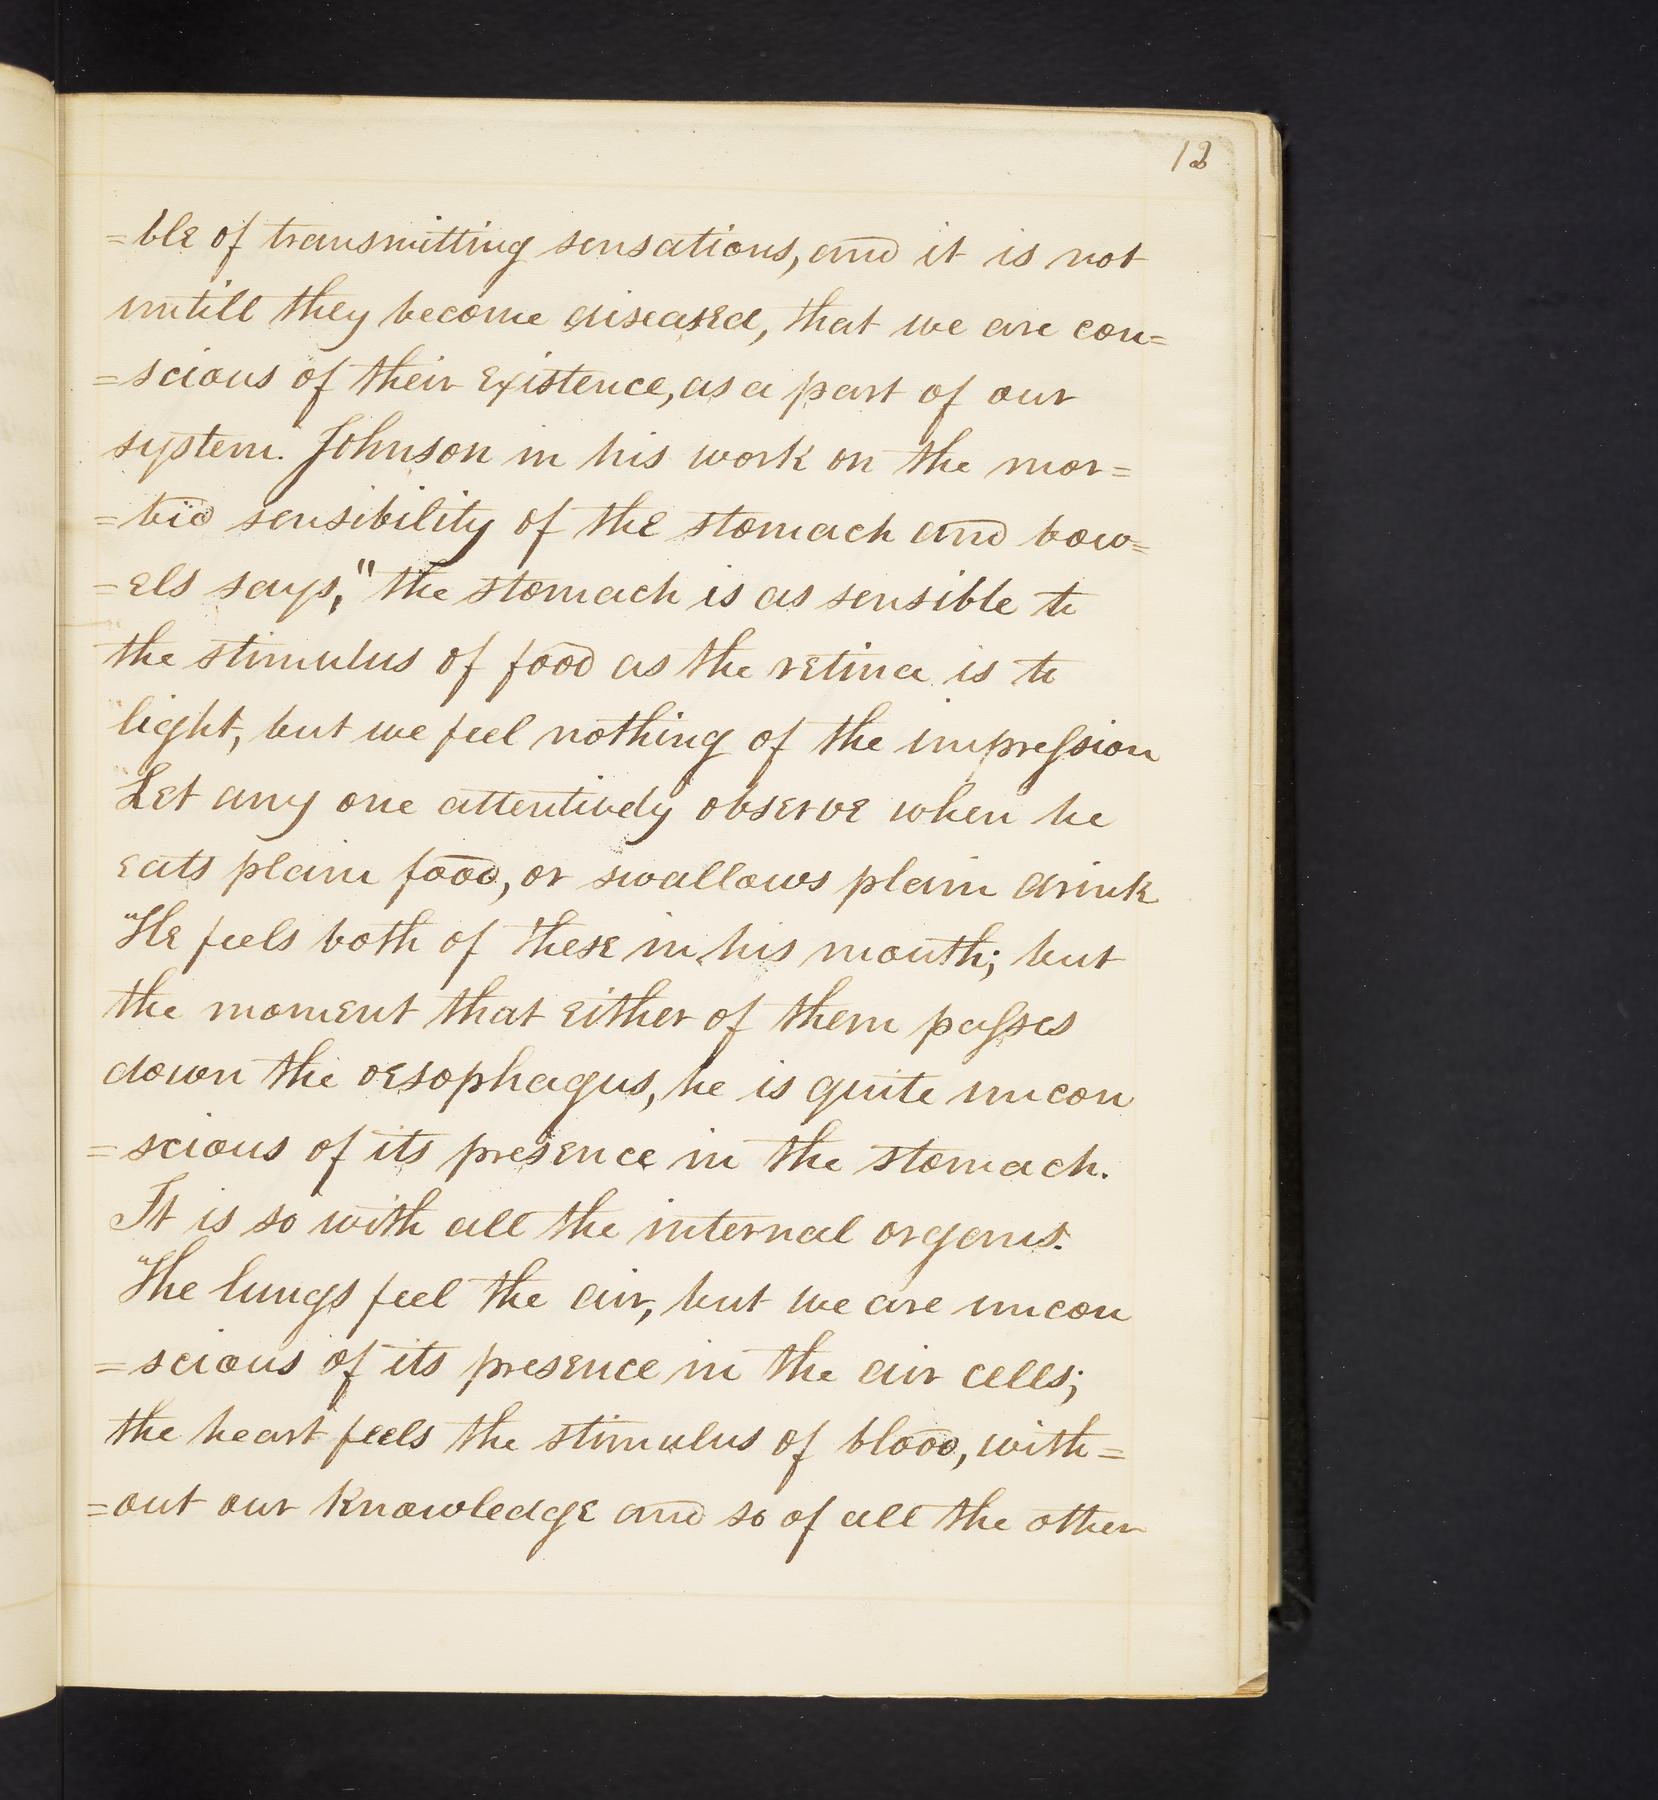 12
=ble of transmitting sensations, and it is not
untill they become diseased, that we are con=
=scious of their existence, as a part of our
system. Johnson in his work on the mor=
=bid sensibility of the stomach and bow=
=els says, "the stomach is as sensible to
"the stimulus of food as the retina is to
"light, but we feel nothing of the impression
"Let any one attentively observe when he
eats plain food, or swallows plain drink
"He feels both of these in his mouth; but
the moment that either of them passes
down the oesophagus, he is quite uncon
=scious of its presence in the stomach.
It is so with all the internal organs.
"The lungs feel the air, but we are uncon
=scious of its presence in the air cells;
the heart feels the stimulus of blood, with=
=out our knowledge and so of all the other